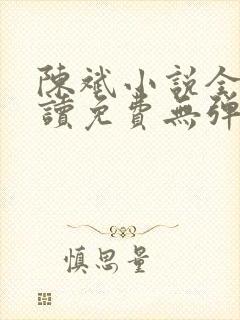 陳斌小説全
讀免費無彈
慎思量